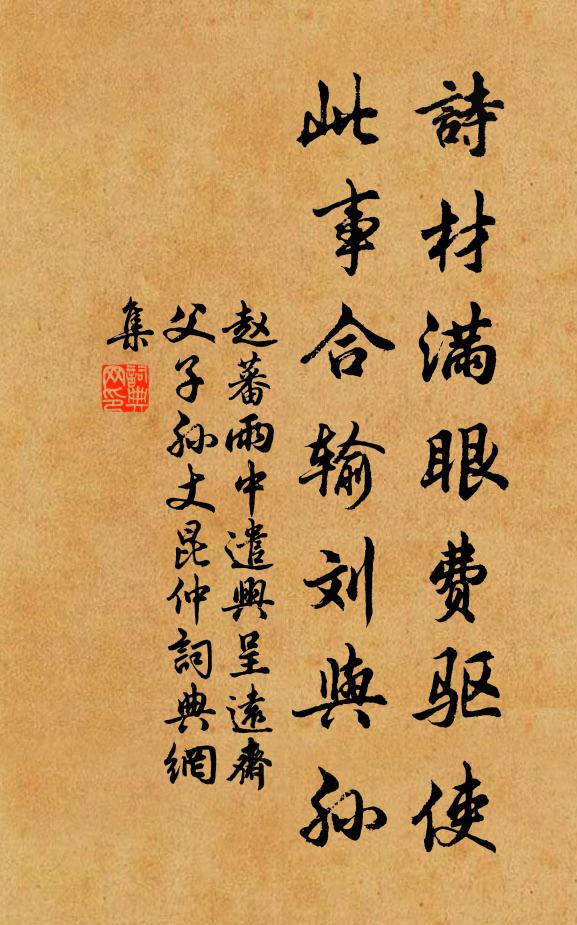 詩材满眼費驱使
此事合输刘與孙
赵蕃雨中遣興呈遠齋
父子孙丈昆仲詞典網
集
詞典
网印